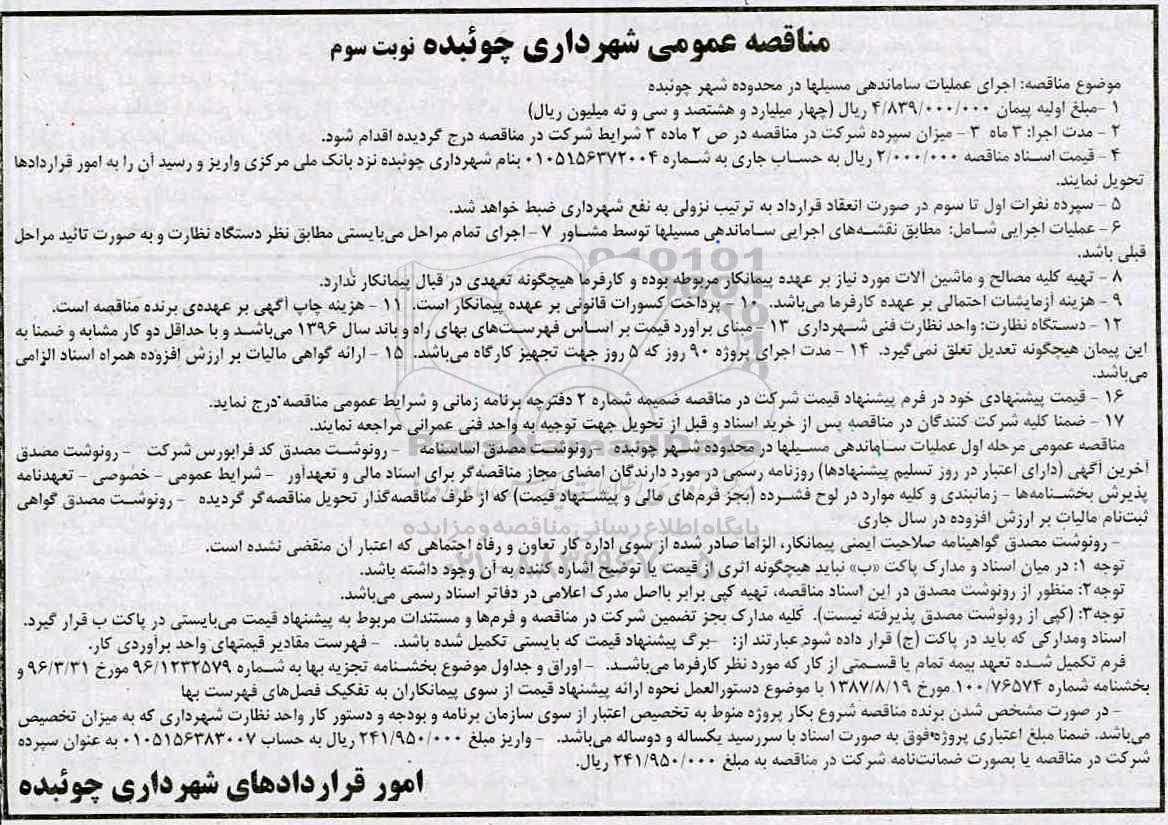 مناقصه عمومی شهرداری چوئبده نوبت سوم
موضوع مناقصه: اجرای عملیات ساماندهی مسیلها در محدوده شهر چوئبده
۱ -مبلغ اولیه پیمان ۴/۸۳۹/۰۰۰/۰۰۰ ریال (چهار میلیارد و هشتصد و سی و نه میلیون ریال)
۲ - مدت اجرا: ۳ ماه ۳ - میزان سپرده شرکت در مناقصه در ص ۲ ماده ۳ شرایط شرکت در مناقصه درج گردیده اقدام شود.
۴ - قیمت اسناد مناقصه ۲/۰۰۰/۰۰۰ ریال به حساب جاری به شماره ۰۱۰۵۱۵۶۳۷۲۰۰۴ بنام شهرداری چوئبده نزد بانک ملی مرکزی واریز و رسید آن را به امور قراردادها
تحویل نمایند.
۵ - سپرده نفرات اول تا سوم در صورت انعقاد قرارداد به ترتیب نزولی به نفع شهرداری ضبط خواهد شد.
۶ - عملیات اجرایی شامل: مطابق نقشه‌های اجرایی ساماندهی مسیلها توسط مشاور ۷ - اجرای تمام مراحل می‌بایستی مطابق نظر دستگاه نظارت و به صورت تائید مراحل
قبلی باشد.
۸ - تهیه کلیه مصالح و ماشین آلات مورد نیاز بر عهده پیمانکار مربوطه بوده و کارفرما هیچگونه تعهدی در قبال پیمانکار ندارد.
۹ - هزینه آزمایشات احتمالی بر عهده کارفرما می‌باشد. ۱۰ - پرداخت کسورات قانونی بر عهده پیمانکار است. ۱۱ - هزینه چاپ آگهی بر عهده‌ی برنده مناقصه است.
۱۲ - دستگاه نظارت: واحد نظارت فنی شهرداری ۱۳ - مبنای برآورد قیمت بر اساس فهرست‌های بهای راه و باند سال ۱۳۹۶ می‌باشد و با حداقل دو کار مشابه و ضمنا به
این پیمان هیچگونه تعدیل تعلق نمی‌گیرد. ۱۴ - مدت اجرای پروژه ۹۰ روز که ۵ روز جهت تجهیز کارگاه می‌باشد. ۱۵ - ارائه گواهی مالیات بر ارزش افزوده همراه اسناد الزامی
می‌باشد.
۱۶ - قیمت پیشنهادی خود در فرم پیشنهاد قیمت شرکت در مناقصه ضمیمه شماره ۲ دفترچه برنامه زمانی و شرایط عمومی مناقصه درج نماید.
۱۷ - ضمنا کلیه شرکت کنندگان در مناقصه پس از خرید اسناد و قبل از تحویل جهت توجیه به واحد فنی عمرانی مراجعه نمایند.
مناقصه عمومی مرحله اول عملیات ساماندهی مسیلها در محدوده شهر چوئبده - رونوشت مصدق اساسنامه - رونوشت مصدق کد فرابورس شرکت - رونوشت مصدق
آخرین آگهی (دارای اعتبار در روز تسلیم پیشنهادها) روزنامه رسمی در مورد دارندگان امضای مجاز مناقصه‌گر برای اسناد مالی و تعهدآور - شرایط عمومی - خصوصی - تعهدنامه
پذیرش بخشنامه‌ها - زمانبندی و کلیه موارد در لوح فشرده (بجز فرم‌های مالی و پیشنهاد قیمت) که از طرف مناقصه‌گذار تحویل مناقصه‌گر گردیده - رونوشت مصدق گواهی
ثبت‌نام مالیات بر ارزش افزوده در سال جاری
- رونوشت مصدق گواهینامه صلاحیت ایمنی پیمانکار، الزاما صادر شده از سوی اداره کار تعاون و رفاه اجتماهی که اعتبار آن منقضی نشده است.
توجه ۱: در میان اسناد و مدارک پاکت «ب» نباید هیچگونه اثری از قیمت یا توضیح اشاره کننده به آن وجود داشته باشد.
توجه۲: منظور از رونوشت مصدق در این اسناد مناقصه، تهیه کپی برابر بااصل مدرک اعلامی در دفاتر اسناد رسمی می‌باشد.
توجه۳: (کپی از رونوشت مصدق پذیرفته نیست). کلیه مدارک بجز تضمین شرکت در مناقصه و فرم‌ها و مستندات مربوط به پیشنهاد قیمت می‌بایستی در پاکت ب قرار گیرد.
اسناد ومدارکی که باید در پاکت (ج) قرار داده شود عبارتند از: -برگ پیشنهاد قیمت که بایستی تکمیل شده باشد. - فهرست مقادیر قیمتهای واحد برآوردی کار.
فرم تکمیل شده تعهد بیمه تمام یا قسمتی از کار که مورد نظر کارفرما می‌باشد. - اوراق و جداول موضوع بخشنامه تجزیه بها به شماره ۹۶/۱۲۳۲۵۷۹ مورخ ۹۶/۳/۳۱ و
بخشنامه شماره ۱۰۰/۷۶۵۷۴ مورخ ۱۳۸۷/۸/۱۹ با موضوع دستورالعمل نحوه ارائه پیشنهاد قیمت از سوی پیمانکاران به تفکیک فصل‌های فهرست بها
- در صورت مشخص شدن برنده مناقصه شروع بکار پروژه منوط به تخصیص اعتبار از سوی سازمان برنامه و بودجه و دستور کار واحد نظارت شهرداری که به میزان تخصیص
می‌باشد. ضمنا مبلغ اعتباری پروژه فوق به صورت اسناد با سررسید یکساله و دوساله می‌باشد. - واریز مبلغ ۲۴۱/۹۵۰/۰۰۰ ریال به حساب ۰۱۰۵۱۵۶۳۸۳۰۰۷ به عنوان سپرده
شرکت در مناقصه یا بصورت ضمانت‌نامه شرکت در مناقصه به مبلغ ۲۴۱/۹۵۰/۰۰۰ ریال.
امور قراردادهای شهرداری چوئبده
ParsNamadData
پایگاه اطلاع رسانی مناقصه و مزایده